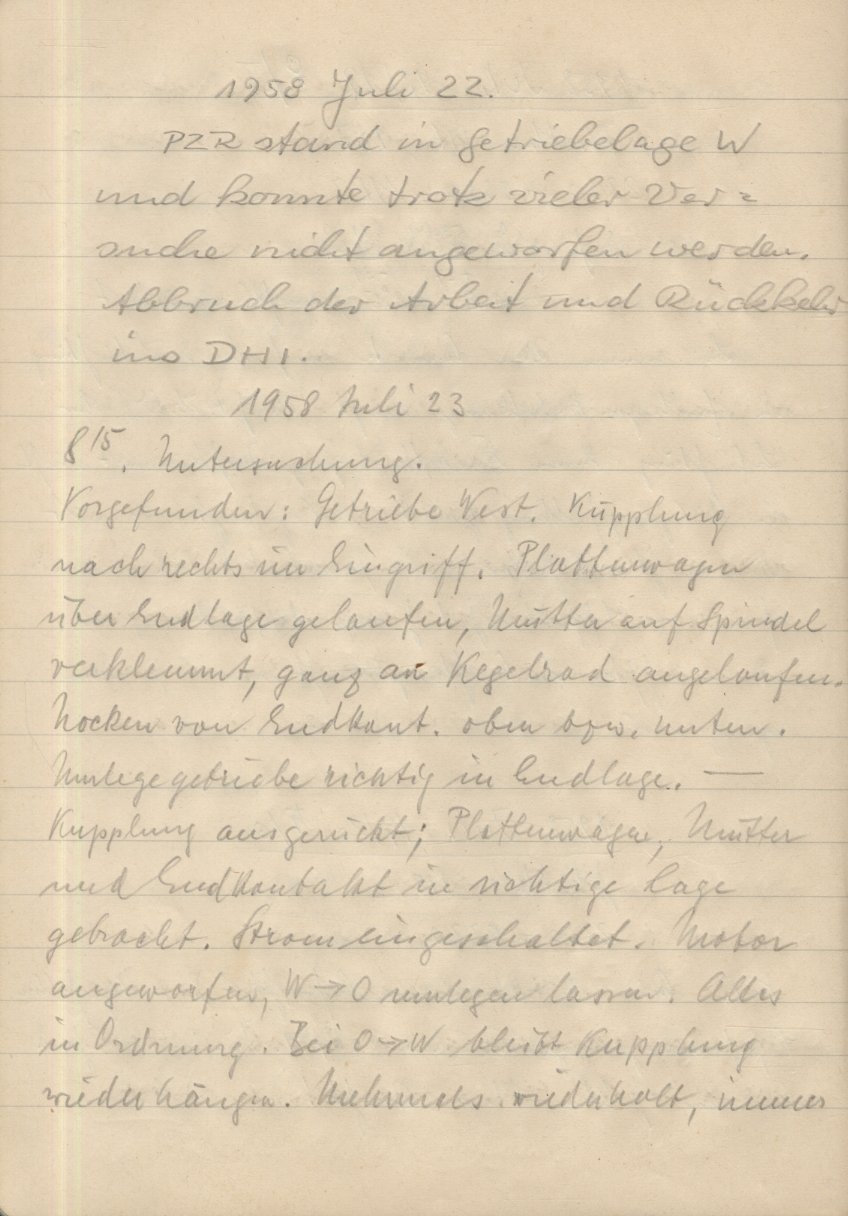 1958 Juli 22.
PZR stand in Getriebelage W
und konnte trotz vieler Ver=
suche nicht angeworfen werden.
Abbruch der Arbeit und Rückkehr
ins DHI.
1958 Juli 23
8 15. Untersuchung.
Vorgefunden: Getriebe West. Kupplung
nach rechts im Eingriff. Plattenwagen
über Endlage gelaufen, Mutter auf Spindel
verklemmt, ganz an Kegelrad angelaufen.
Nocken von Endkont. oben bzw. unten.
Umlegegetriebe richtig in Endlage. —
Kupplung ausgerückt; Plattenwagen, Mutter
und Endkontakt in richtige Lage
gebracht. Strom eingeschaltet. Motor
angeworfen, W→O umlegen lassen. Alles
in Ordnung. Bei O→W bleibt Kupplung
wieder hängen. Mehrmals wiederholt, immer